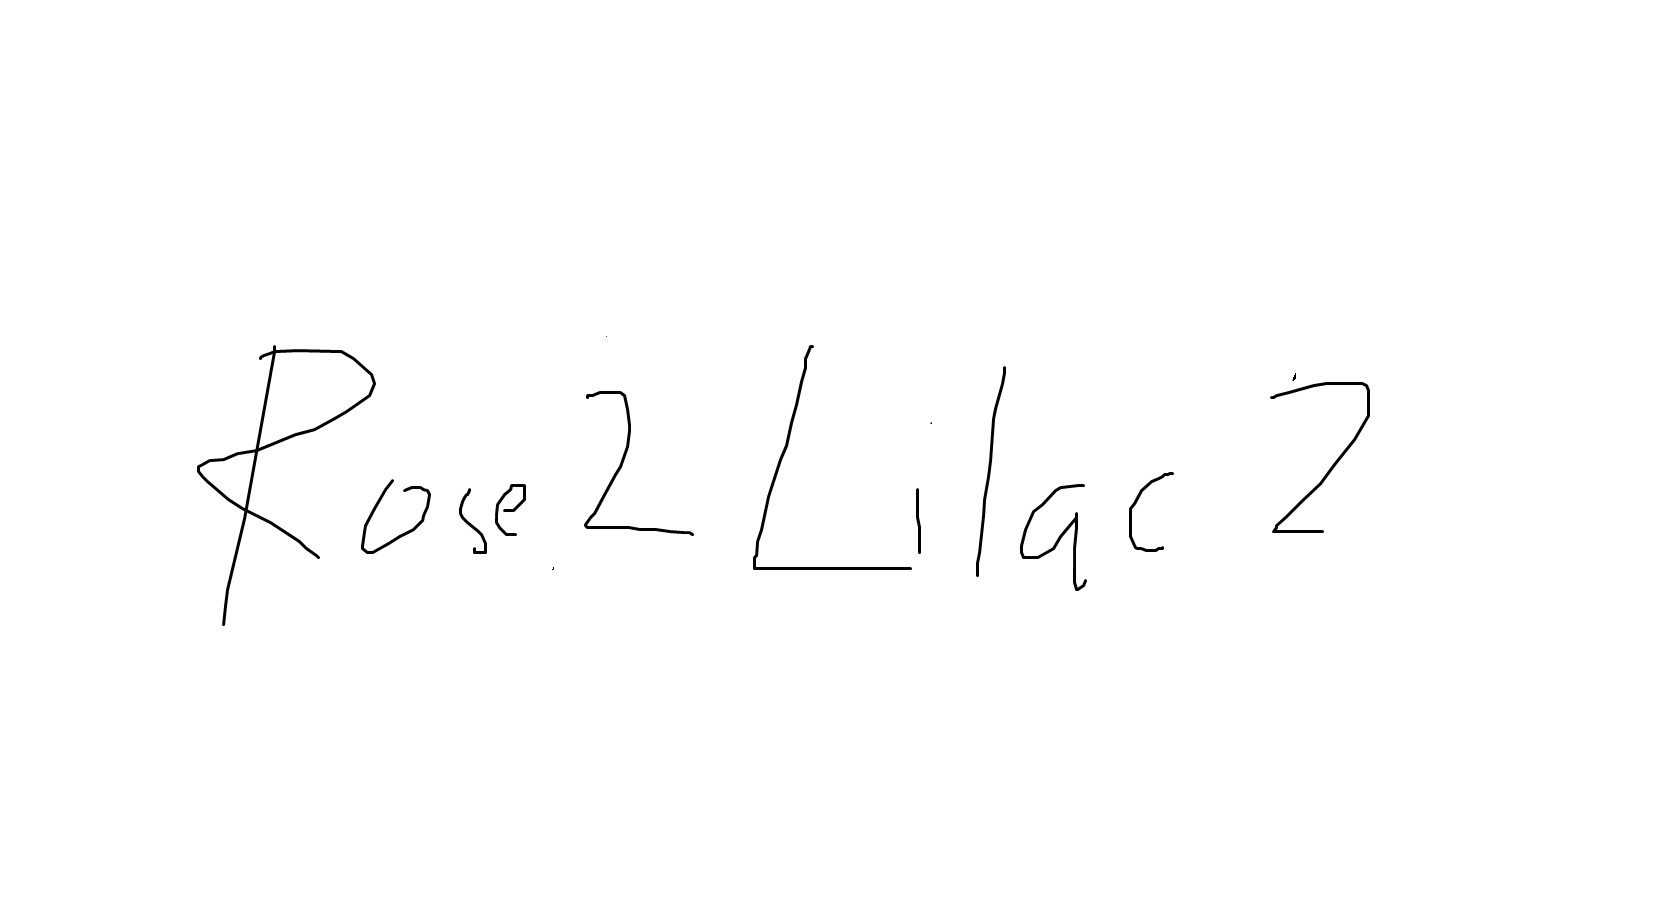 Rose 2 Lilac 2